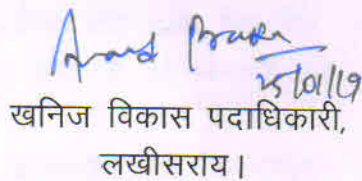 Anand Prasad
25/01/19
खनिज विकास पदाधिकारी,
लखीसराय।